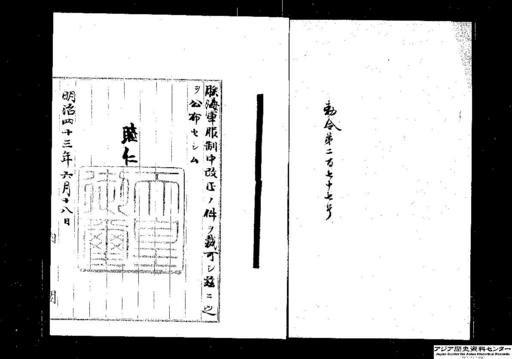 勅令第二百七十七号
朕海軍服制中改正ノ件ヲ裁可シ茲ニ之
ヲ公布セシム
睦仁
天皇
御璽
明治四十三年六月十八日
内閣
アジア歴史資料センター
Japan Center for Asian Historical Records